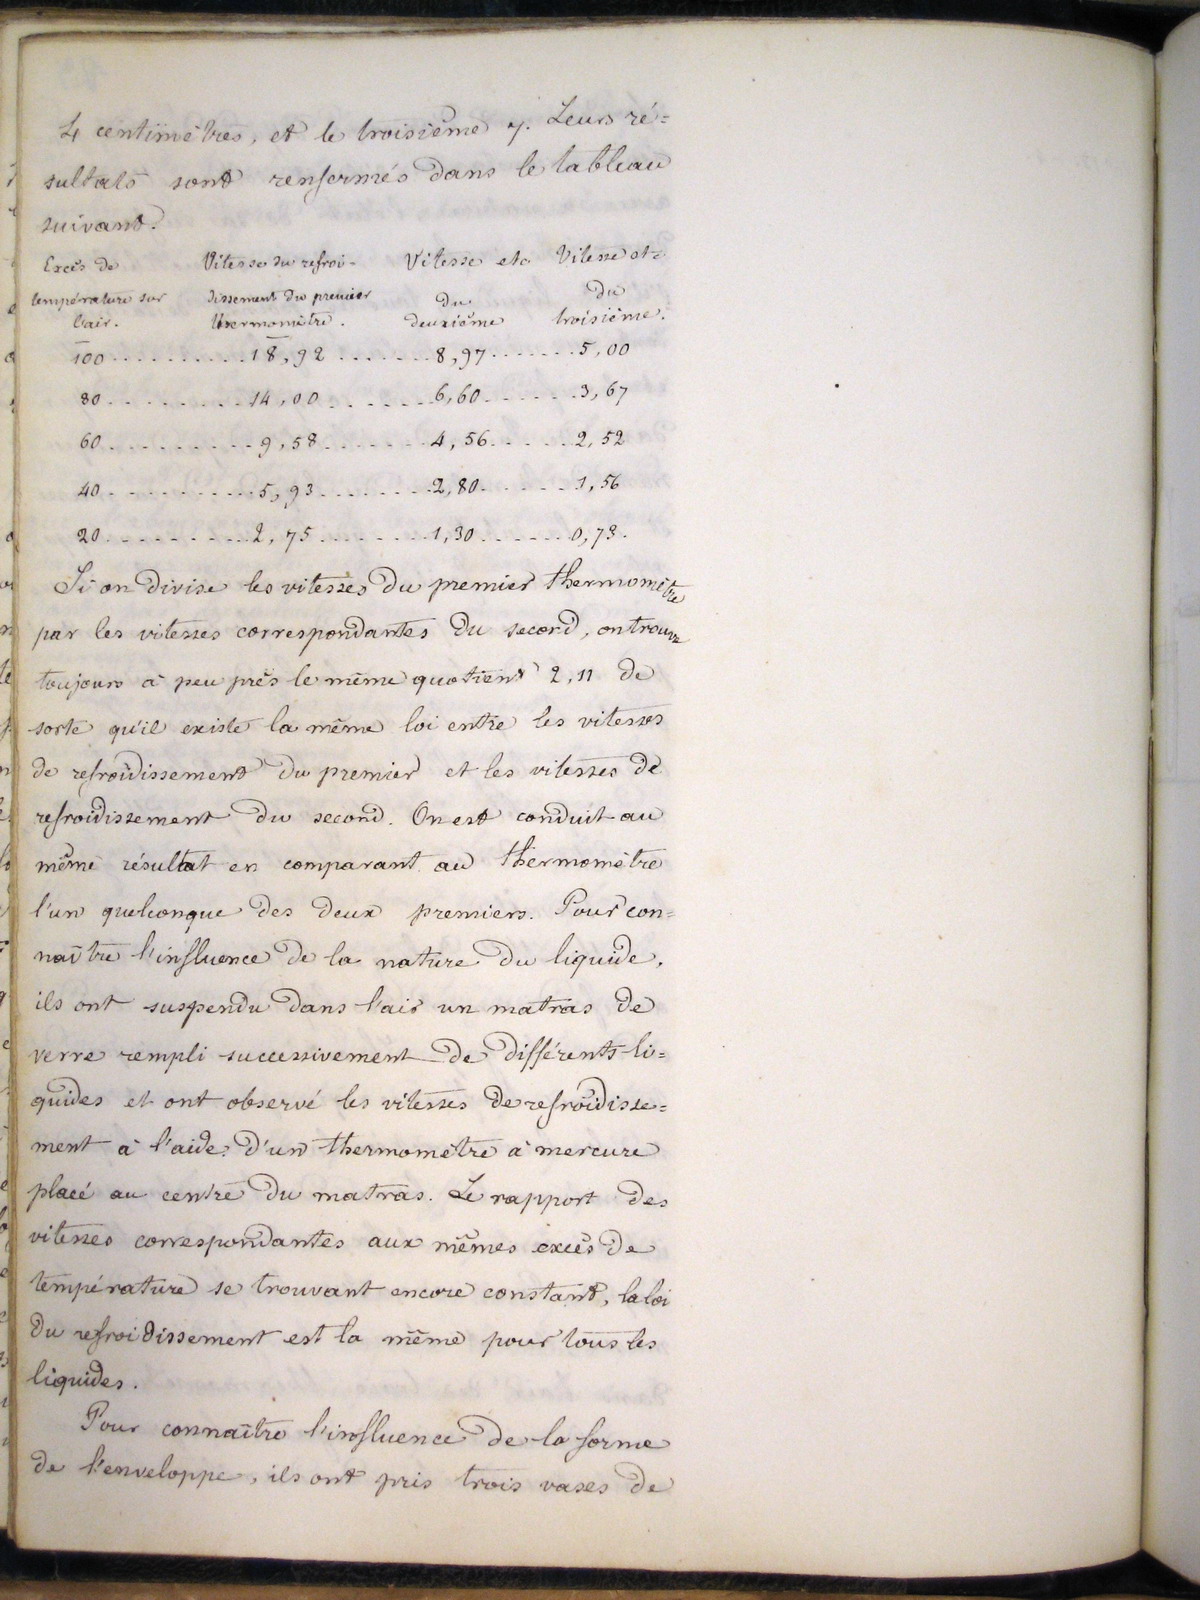 4 centimètres, et le troisième 7. Leurs ré=
sultats sont renfermés dans le tableau
suivant.
Excès de Vitesse du refroi- Vitesse etc Vitesse et=
température sur dissement du premier du du
l'air. thermomètre. deuxième troisième.
100 .......... 18,92 ....... 8,97 ....... 5,00
80 .......... 14,00 ....... 6,60 ....... 3,67
60 .......... 9,58 ....... 4,56 ....... 2,52
40 .......... 5,93 ....... 2,80 ....... 1,56
20 .......... 2,75 ....... 1,30 ....... 0,73.
Si on divise les vitesses du premier thermomètre
par les vitesses correspondantes du second, on trouve
toujours à peu près le même quotient 2,11 de
sorte qu'il existe la même loi entre les vitesses
de refroidissement du premier et les vitesses de
refroidissement du second. On est conduit au
même résultat en comparant au thermomètre
l'un quelconque des deux premiers. Pour con=
naître l'influence de la nature du liquide,
ils ont suspendu dans l'air un matras de
verre rempli successivement de différents li=
quides et ont observé les vitesses de refroidisse=
ment à l'aide d'un thermomètre à mercure
placé au centre du matras. Le rapport des
vitesses correspondantes aux mêmes excès de
température se trouvant encore constant, la loi
du refroidissement est la même pour tous les
liquides.
Pour connaître l'influence de la forme
de l'enveloppe, ils ont pris trois vases de